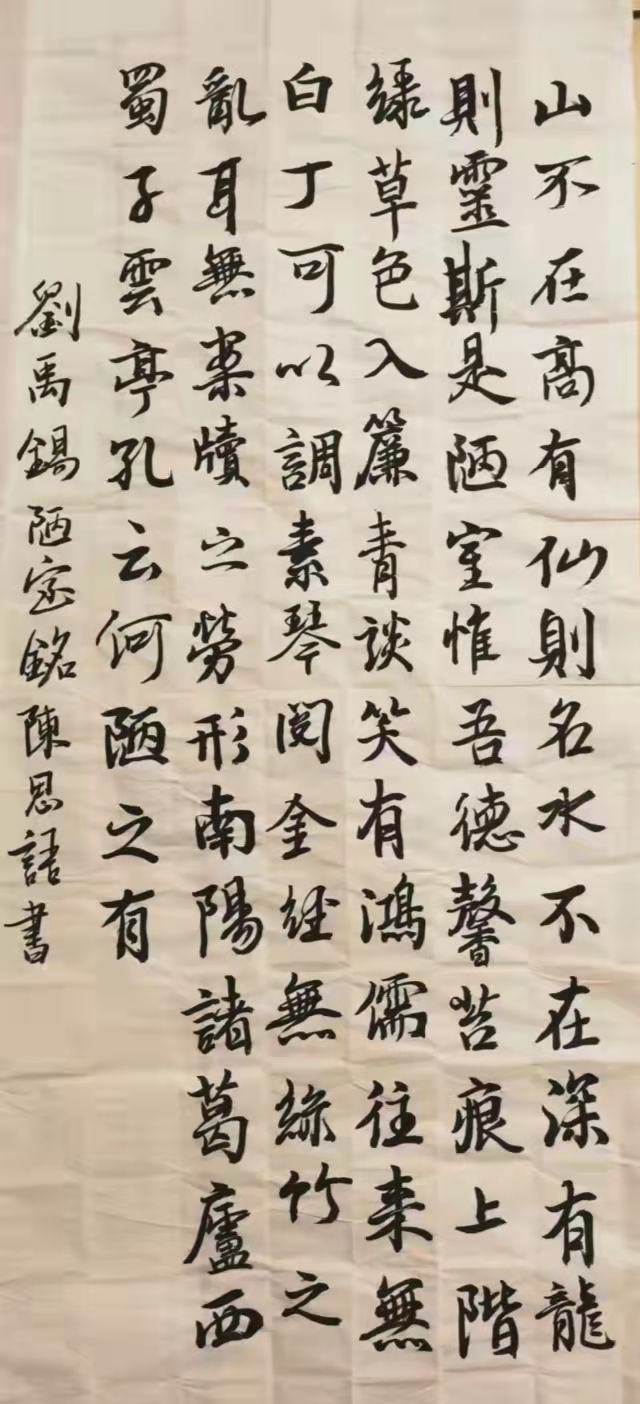 山不在高有仙則名水不在深有龍
則靈斯是陋室惟吾德馨苔痕上階
緑草色入簾青談笑有鴻儒往来無
白丁可以調素琴閱金經無絲竹之
亂耳無案牘之勞形南陽諸葛廬西
蜀子雲亭孔云何陋之有
劉禹錫陋室銘陳思語書